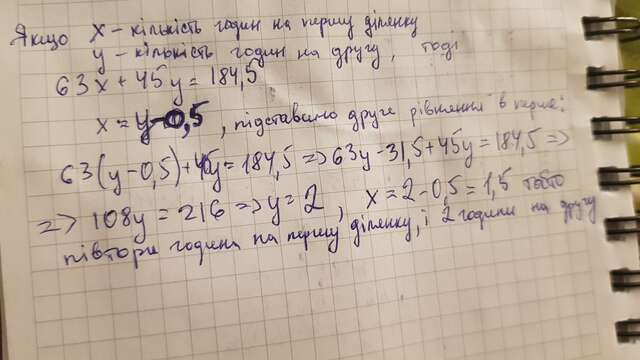 Якщо х – кількість годин на першу ділянку
у – кількість годин на другу, тоді
63х + 45у = 184,5
х = у - 0,5, підставимо друге рівняння в перше:
63(у - 0,5) + 45у = 184,5 => 63у - 31,5 + 45у = 184,5 =>
=> 108у = 216 => у = 2, х = 2 - 0,5 = 1,5 тобто
півтори години на першу ділянку, і 2 години на другу